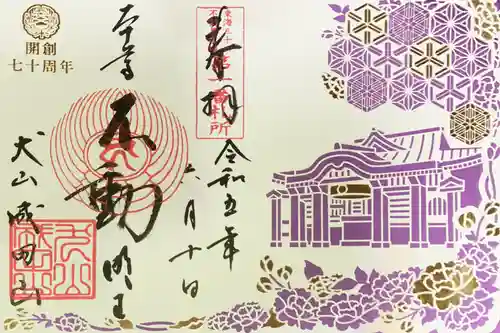 開創
七十周年
奉拝
第一番札所
令和五年
六月十日
本尊
不動明王
犬山成田山